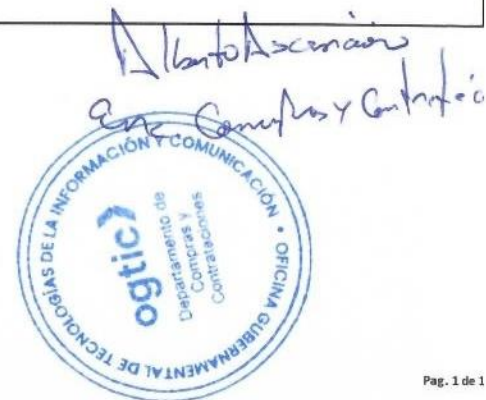 Alberto Ascención
Enc. Compras y Contratación
OFICINA GUBERNAMENTAL DE TECNOLOGÍAS DE LA INFORMACIÓN Y COMUNICACIÓN •
ogtic
Departamento de
Compras y
Contrataciones
Pag. 1 de 1